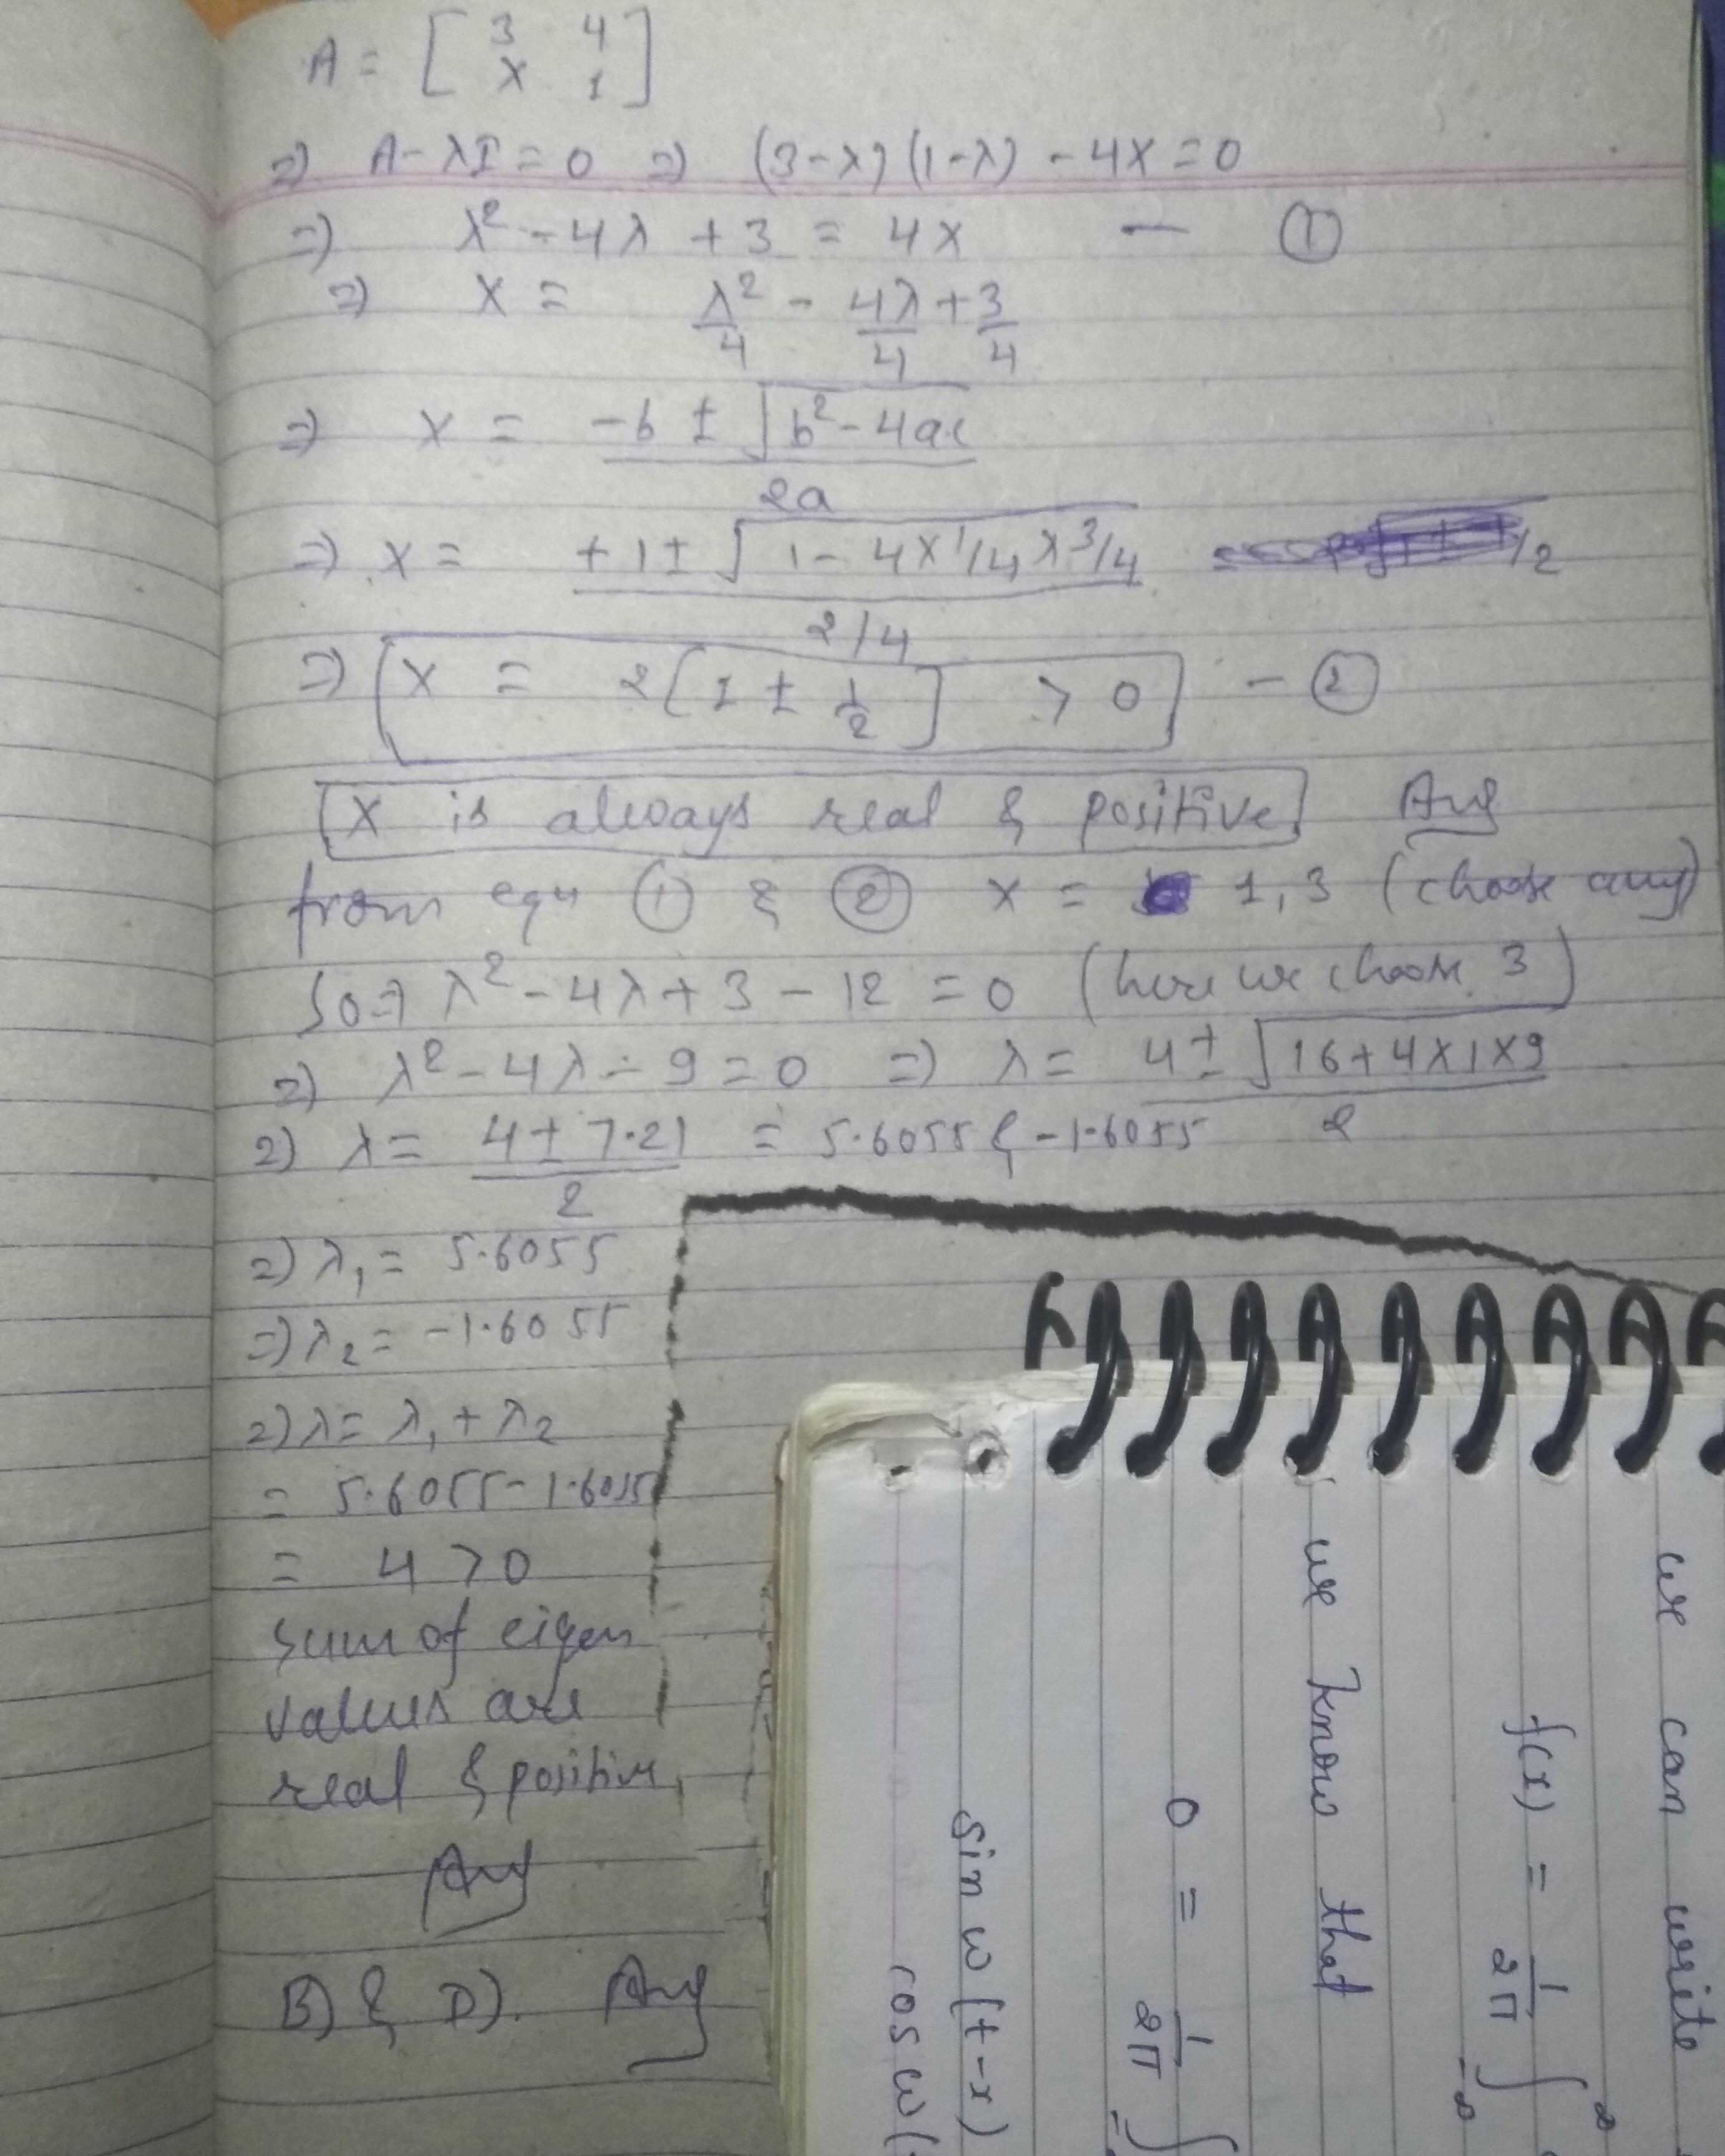 A = [ 3 4
X 1 ]
=) A - λI = 0 =) (3-λ) (1-λ) - 4X = 0
=) λ² - 4λ + 3 = 4X — ①
=) X = λ²/4 - 4λ/4 + 3/4
=) X = -b ± √b² - 4ac / 2a
=) X = +1 ± √1 - 4X1/4 X 3/4 / 2/4
=) [X = 2[1 ± 1/2] > 0] - ②
[X is always real & positive] Ans
from equ ① & ② X = 1, 3 (choose any)
So =) λ² - 4λ + 3 - 12 = 0 (here we choose 3)
=) λ² - 4λ - 9 = 0 =) λ = 4 ± √16 + 4X1X9 / 2
=) λ = 4 ± 7.21 / 2 = 5.6055 & -1.6055
=) λ₁ = 5.6055
=) λ₂ = -1.6055
=) λ = λ₁ + λ₂
= 5.6055 - 1.6055
= 4 > 0
sum of eigen
values are
real & positive,
Ans
B) & D). Ans
we can write
f(x) = 1/2π ∫ -∞ ∞
we know that
0 = 1/2π ∫
sin w (t-x)
cos w (